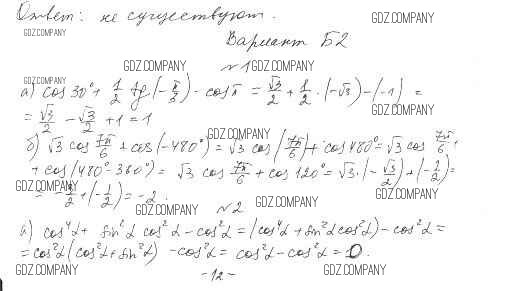 Ответ: не существуют.
GDZ.COMPANY
GDZ.COMPANY
Вариант Б2
GDZ.COMPANY
№1 GDZ.COMPANY
GDZ.COMPANY
а) cos 30° + 1/2 tg(-π/3) - cos π = √3/2 + 1/2 · (-√3) - (-1) =
GDZ.COMPANY
= √3/2 - √3/2 + 1 = 1
GDZ.COMPANY
б) √3 cos 7π/6 + cos(-480°) = √3 cos(7π/6) + cos 480° = √3 cos 7π/6 +
GDZ.COMPANY
+ cos(480° - 360°) = √3 cos 7π/6 + cos 120° = √3 · (-√3/2) + (-1/2) =
GDZ.COMPANY
GDZ.COMPANY
= -3/2 + (-1/2) = -2.
GDZ.COMPANY
№2 GDZ.COMPANY
а) cos⁴α + sin²α cos²α - cos²α = (cos⁴α + sin²α cos²α) - cos²α =
= cos²α (cos²α + sin²α) - cos²α = cos²α - cos²α = 0.
GDZ.COMPANY
-12-
GDZ.COMPANY